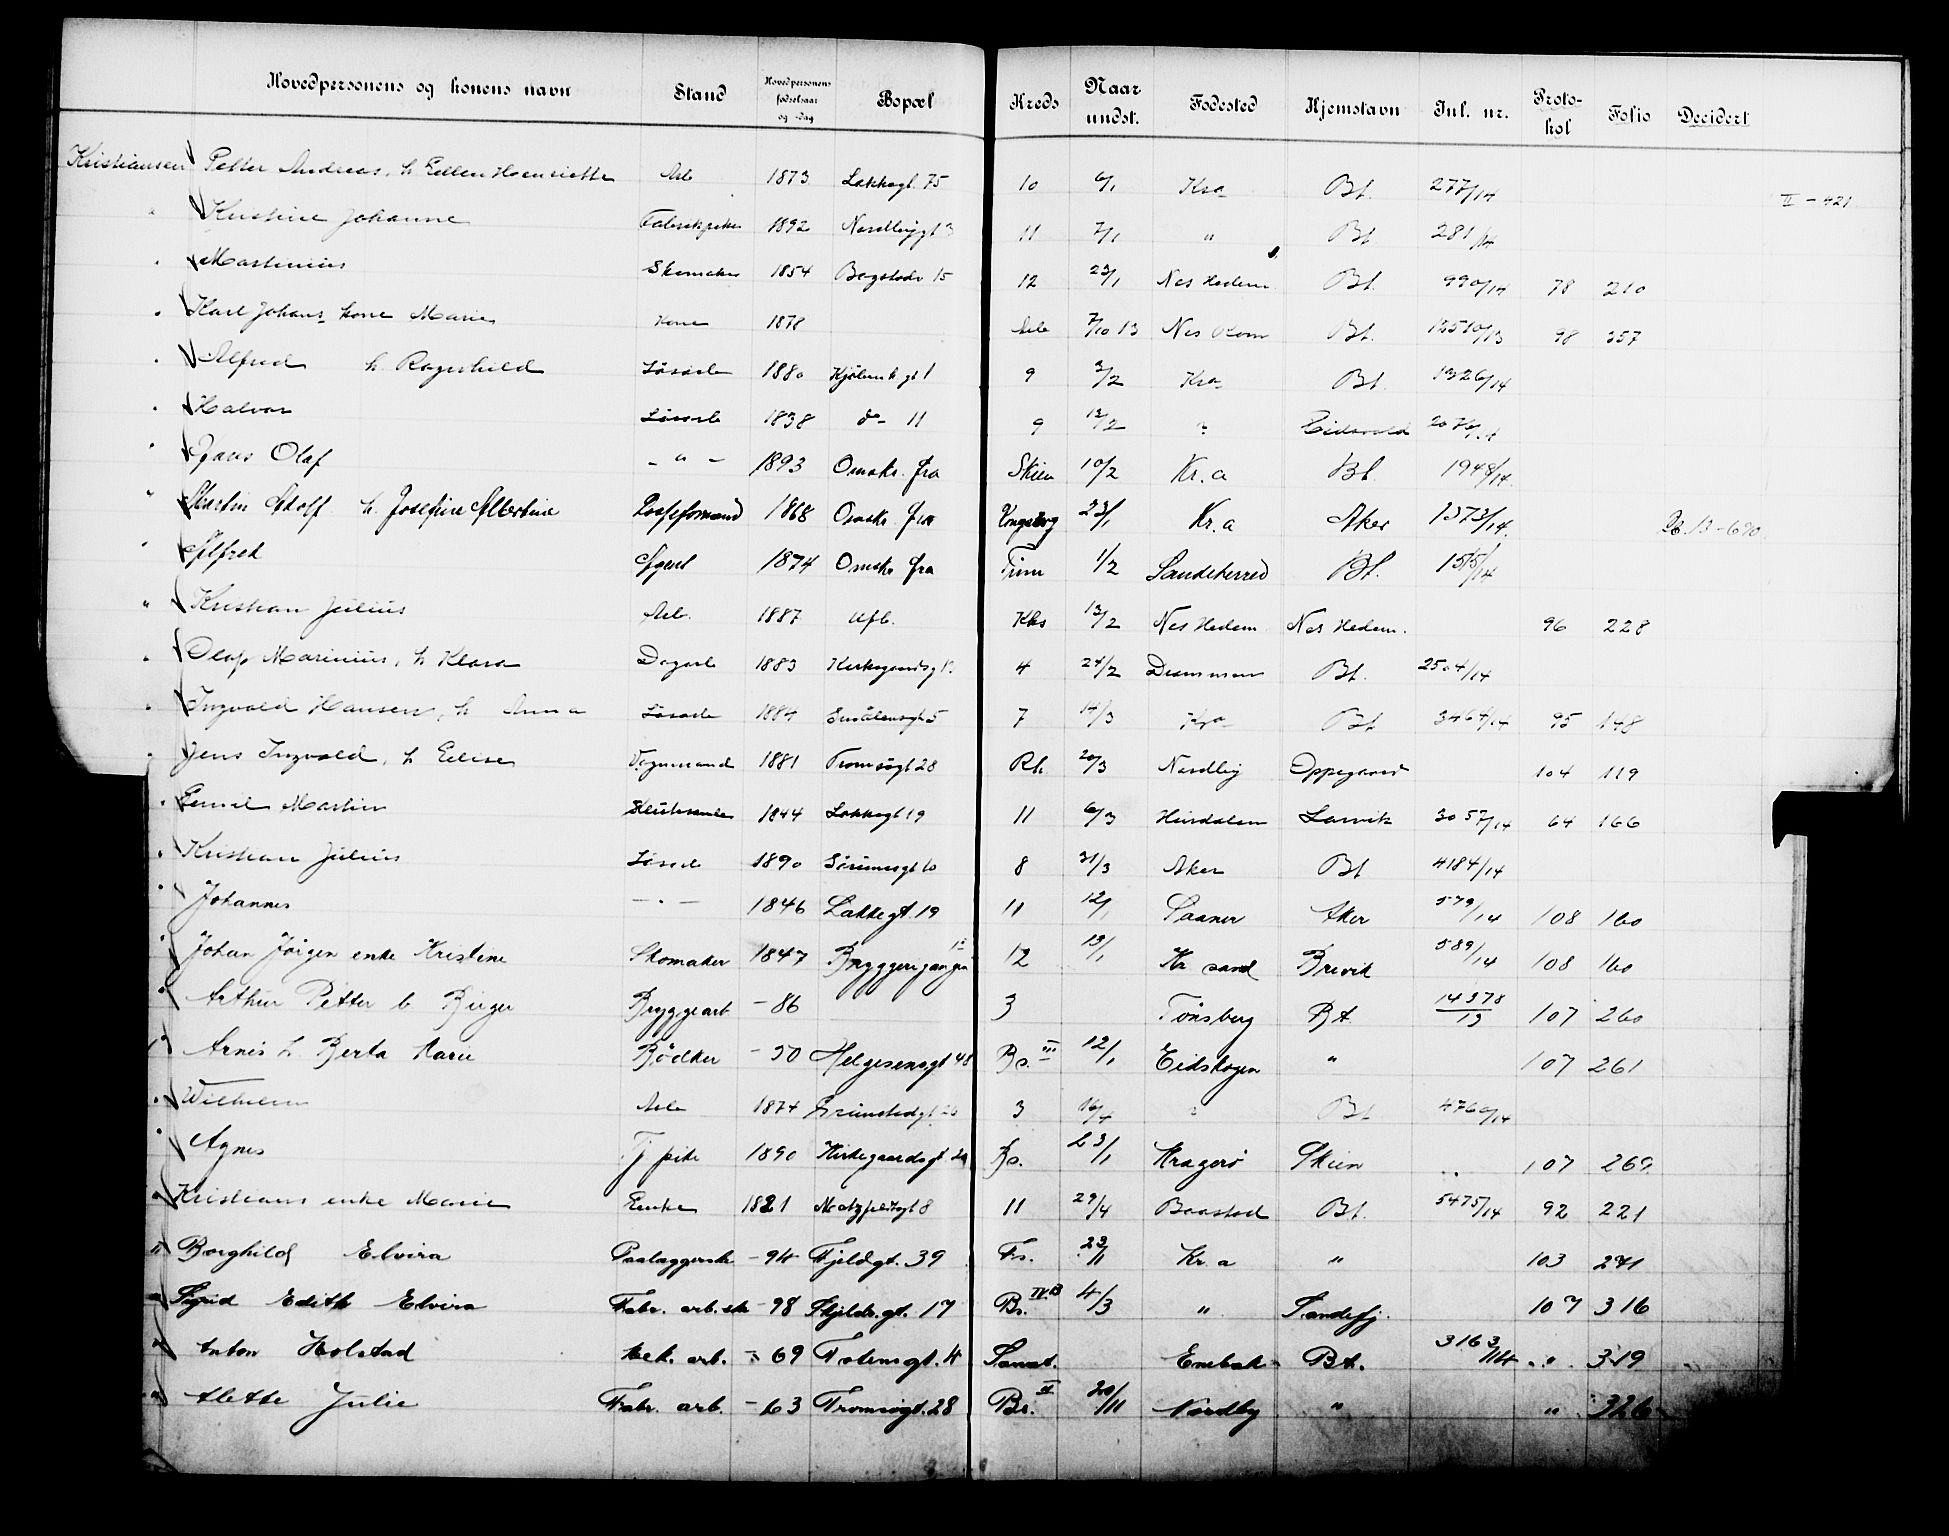 Hovedpersonens og konens navn Stand Hovedpersonens fødselsaar og -dag Bopæl Kreds Naar undst. Fødested Hjemstavn Jul. nr. Proto-kol Folio Decidert
Kristiansen Petter Andreas, h. Ellen Henriette Arb 1873 Lakkegt. 75 10 6/1 Kra Bt. 277/14 II - 421
" Kristine Johanne Fabrikpike 1892 Nordbygt 3 11 7/1 " Bt 281/14
" Martinius Skomaker 1854 Bogstadv 15 12 23/1 Nes Hedem Bt. 990/14 78 210
" Karl Johans kone Marie Kone 1878 7/10 13 Nes Bt. 13510/13 98 357
" Alfred h. Ragnhild Løsarb 1880 Kjøbenh.gt 1 9 3/2 Kra Bt. 1326/14
" Halvor Løsarb 1838 do 11 9 13/2 " Eidsvold 2076/14
" Hans Olaf - " - 1893 Omstr. fra Skien 10/2 Kr.a Bt. 1948/14
" Martin Adolf h. Josefine Albertine 1868 Omstr. fra Kongsberg 23/1 Kr.a Aker 1373/14
" Alfred Agent 1874 Omstr. fra 1/2 Sandeherred Bt. 1515/14
" Kristian Julius Arb. 1887 Ufb. Kbs 13/2 Nes Hedem. Nes Hedem. 96 228
" Olaf Marinius, h. Klara Dagarb 1883 Kirkegaardsgt 13 4 24/2 Drammen Bt. 2504/14
" Ingvald Hansen, h. Anna Løsarb 1884 Smålensgt 5 7 14/3 Kra Bt 3464/14 95 148
" Jens Ingvald, h. Elise Vognmand 1881 Tromsøgt 28 Rh. 20/3 Nordby Oppegaard 104 119
" Emil Martin 1844 Lakkegt 19 11 6/3 Hurdalen Larvik 3057/14 64 166
" Kristian Julius Løsarb 1890 Sørumsgt 10 8 31/3 Aker Bt 4184/14
" Johannes - " - 1846 Lakkegt. 19 11 12/1 Saaner Aker 579/14 108 160
" Johan Jørgen enke Kristine Skomaker 1847 Bryggerigangen 12 12 13/1 Kr sand Brevik 589/14 108 160
" Arthur Petter b. Birger Bryggearb - 86 3 Tönsberg Bt. 14378/13 107 260
" Arnes h. Berta Karie Bødker - 50 Helgesensgt 48 Bs. III 12/1 Eidskogen " 107 261
" Wilhelm Arb 1874 Grimstadgt. 3 16/4 " Bt 4760/14
" Agnes Tj pike 1890 Kirkegaardsgt. 20 Bs. 23/1 Kragerø Skien " 107 269
" Kristians enke Marie Enke 1821 Motzfeldtsgt 8 11 29/4 Baastad Bt. 5475/14 92 221
" Borghild Elvira Paalæggerske - 94 Fjeldgt. 39 Fs. 23/11 Kr. a " 103 271
" Sigrid Edith Elvira Fabr. arb.sk - 98 Skjoldsgt. 17 Bs. IV B 4/3 " Sandefj. 107 316
" Anton Holstad Mek. arb. - 69 Totensgt. 4 Sanat. Enebak Bt. 3163/14 " 319
" Alette Julie Fabr. arb. - 63 Tromsøgt. 28 Bs. II 20/11 Nordby " " 326